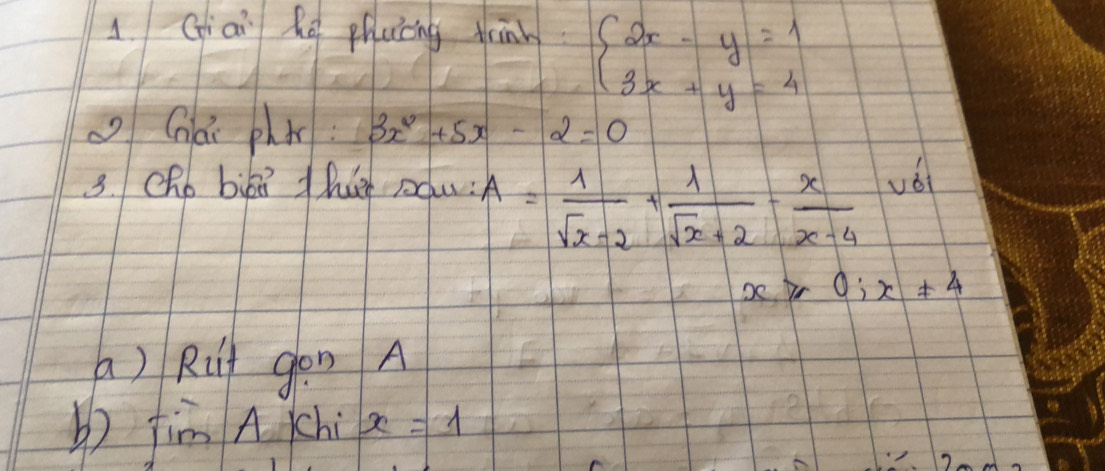 1. Giải hệ phương trình : { 2x - y = 1
3x + y = 4
2. Giải phtr : 3x² + 5x - 2 = 0
3. Cho biểu thức sau : A = 1/(√x - 2) + 1/(√x + 2) - x/(x - 4) với
x ≥ 0 ; x ≠ 4
a) Rút gọn A
b) Tìm A khi x = 1